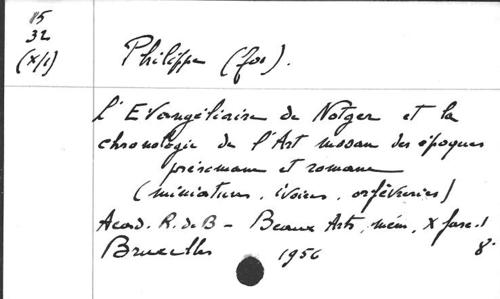 15
32
(X/1)
Philippe (Jos).
L'Evangéliaire de Notger et la
chronologie de l'Art mosan des époques
préromane et romane
(miniatures, ivoires, orfèvreries)
Acad. R. de B - Beaux Arts, mém, X fasc. 1
Bruxelles 1956 8°